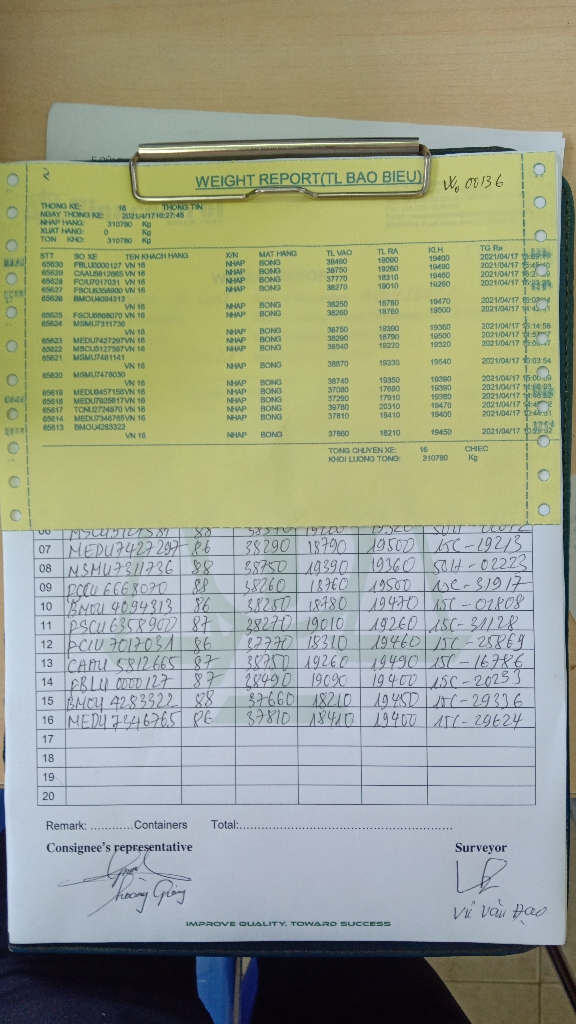 2
WEIGHT REPORT(TL BAO BIEU)
00136
THONG KE: 16 THONG TIN
NGAY THONG KE: 2021/4/17 16:27:45
NHAP HANG: 310780 Kg
XUAT HANG: 0 Kg
TON KHO: 310780 Kg
STT SO XE TEN KHACH HANG X/N MAT HANG TL VAO TL RA KLH TG Ra
65630 FBLU0000127 VN 16 NHAP BONG 38490 19090 19400 2021/04/17
65629 CAAU5812665 VN 16 NHAP BONG 38750 19260 19490 2021/04/17
65628 FCIU7017031 VN 16 NHAP BONG 37770 18310 19460 2021/04/17
65627 FSCU6358900 VN 16 NHAP BONG 38270 19010 19260 2021/04/17
65626 BMOU4094313
VN 16 NHAP BONG 38250 18780 19470 2021/04/17
65625 FSCU6668070 VN 16 NHAP BONG 38260 18760 19500 2021/04/17
65624 MSMU7311736
VN 16 NHAP BONG 38750 19390 19360 2021/04/17 15:14:58
65623 MEDU7427297 VN 16 NHAP BONG 38290 18790 19500 2021/04/17
65622 MSCU3127587 VN 16 NHAP BONG 38540 19220 19320 2021/04/17
65621 MSMU7481141
VN 16 NHAP BONG 38870 19330 19540 2021/04/17 15:03:54
65620 MSMU7478030
VN 16 NHAP BONG 38740 19350 19390 2021/04/17
65619 MEDU9457156 VN 16 NHAP BONG 37080 17690 19390 2021/04/17
65618 MEDU7925617 VN 16 NHAP BONG 37290 17910 19380 2021/04/17
65617 TCNU2724870 VN 16 NHAP BONG 39780 20310 19470 2021/04/17
65614 MEDU7346765 VN 16 NHAP BONG 37810 18410 19400 2021/04/17
65613 BMOU4283322
VN 16 NHAP BONG 37660 18210 19450 2021/04/17
TONG CHUYEN XE: 16 CHIEC
KHOI LUONG TONG: 310780 Kg
07 MEDU7427297 86 38290 18790 19500 15C-19213
08 MSMU7311736 88 38750 19390 19360 50LH-02223
09 FSCU 6668070 88 38260 18760 19500 15C-31917
10 BMOU 4094313 86 38250 18780 19470 15C-02808
11 FSCU6358900 87 38270 19010 19260 15C-31128
12 FCIU 7017031 86 37770 18310 19460 15C-25869
13 CAAU 5812665 87 38750 19260 19490 15C-16786
14 FBLU 0000127 87 38490 19090 19400 15C-20233
15 BMOU 4283322 88 37660 18210 19450 15C-29336
16 MEDU 7346765 86 37810 18410 19400 15C-29624
17
18
19
20
Remark: ............Containers Total:......................................................
Consignee's representative Surveyor
Hoàng Giang Vũ Văn Đạo
IMPROVE QUALITY, TOWARD SUCCESS